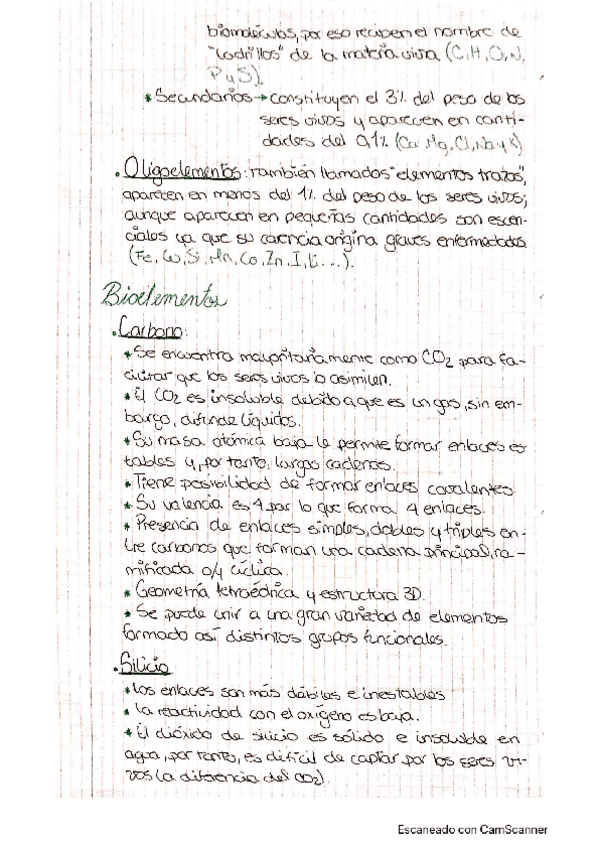 biomoléculas, por eso reciben el nombre de
"ladrillos" de la materia viva (C, H, O, N,
P y S).
* Secundarios → constituyen el 3% del peso de los
seres vivos y aparecen en canti-
dades del 0,1% (Ca, Mg, Cl, Na y K)
. Oligoelementos: También llamados "elementos trazas",
aparecen en menos del 1% del peso de los seres vivos;
aunque aparecen en pequeñas cantidades son esen-
ciales ya que su carencia origina graves enfermedades
(Fe, Cu, Si, Mn, Co, Zn, I, Li...).
Bioelementos
. Carbono:
* Se encuentra mayoritariamente como CO2 para fa-
cilitar que los seres vivos lo asimilen.
* El CO2 es insoluble debido a que es un gas, sin em-
bargo, difunde líquidos.
* Su masa atómica baja le permite formar enlaces es
tables y, por tanto, largas cadenas.
* Tiene posibilidad de formar enlaces covalentes
* Su valencia es 4 por lo que forma 4 enlaces.
* Presencia de enlaces simples, dobles y triples en-
tre carbonos que forman una cadena principal, ra-
mificada o/y cíclica.
* Geometría tetraédrica y estructura 3D.
* Se puede unir a una gran variedad de elementos
formado así distintos grupos funcionales.
. Silicio
* Los enlaces son más débiles e inestables
* La reactividad con el oxígeno es baja.
* El dióxido de silicio es sólido e insoluble en
agua, por tanto, es difícil de captar por los seres vi-
vos (a diferencia del CO2).
Escaneado con CamScanner